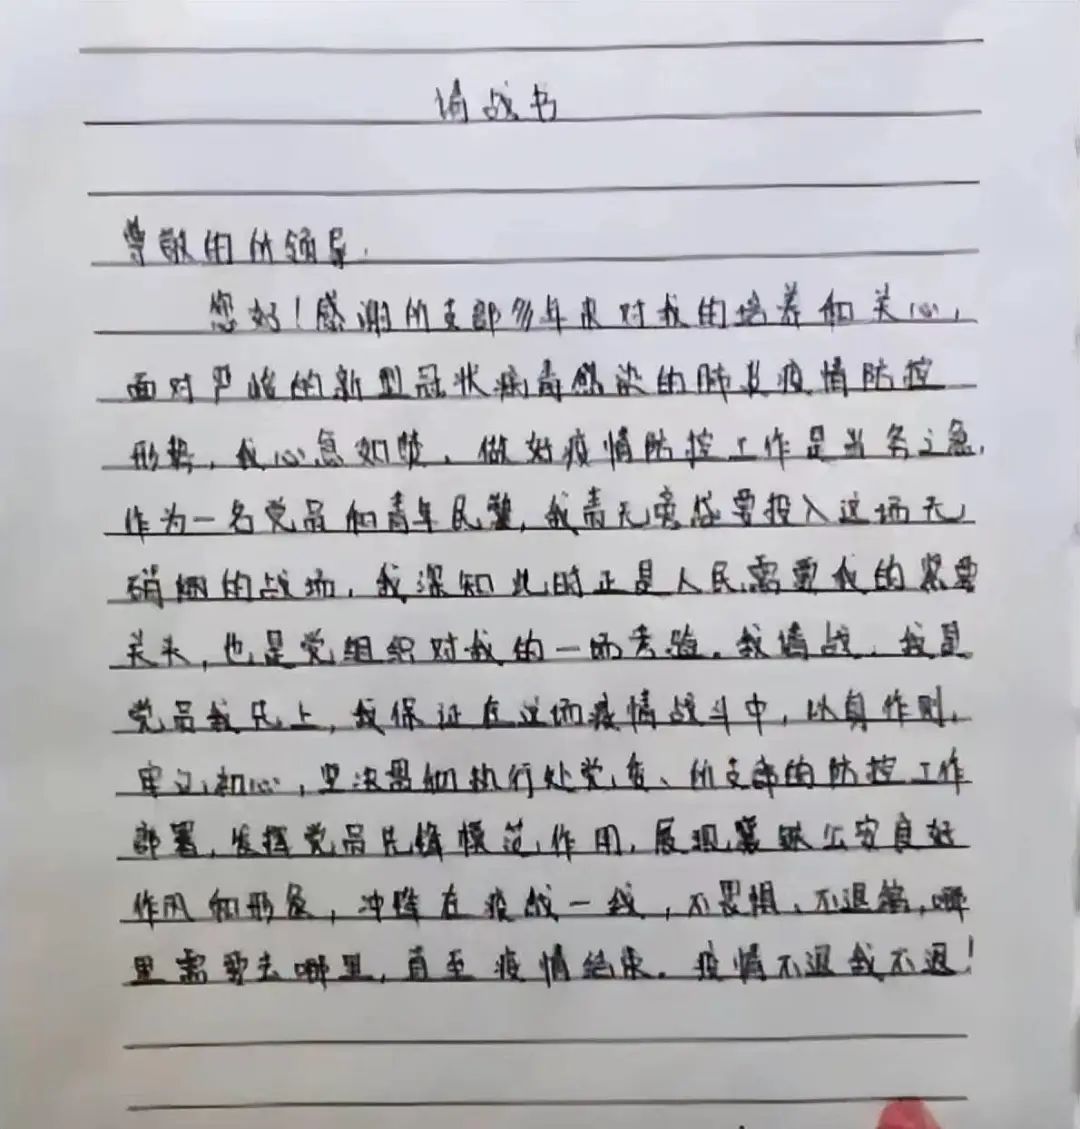 请战书
尊敬的所领导:
您好！感谢所支部多年来对我的培养和关心，
面对严峻的新型冠状病毒感染的肺炎疫情防控
形势，我心急如焚，做好疫情防控工作是当务之急，
作为一名党员和青年民警，我责无旁贷要投入这场无
硝烟的战场，我深知此时正是人民需要我的紧要
关头，也是党组织对我的一场考验。我请战，我是
党员我先上，我保证在这场疫情战斗中，以身作则，
牢记初心，坚决贯彻执行处党委、所支部的防控工作
部署，发挥党员先锋模范作用，展现襄铁公安良好
作风和形象，冲锋在疫战一线，不畏惧、不退缩，哪
里需要去哪里，直至疫情结束。疫情不退我不退！